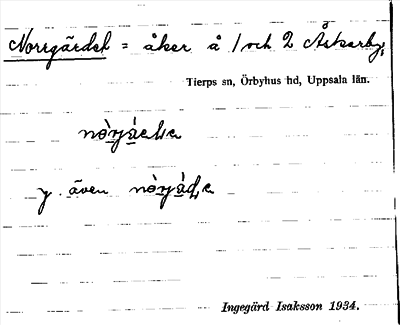 Norrgärdet = åker å 1 och 2 Åskarby,
Tierps sn, Örbyhus hd, Uppsala län.
y. även
Ingegärd Isaksson 1934.